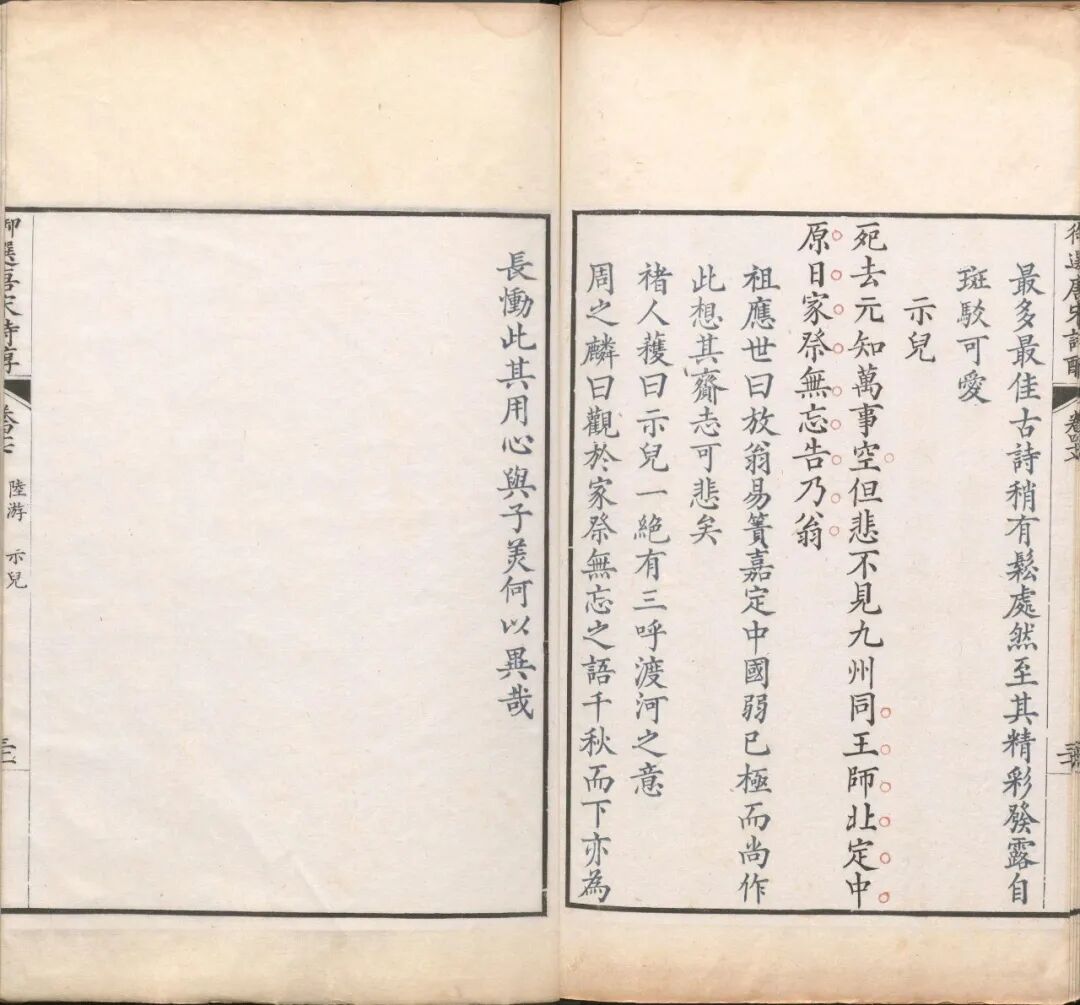 御選唐宋詩醇
最多最佳古詩稍有鬆處然至其精彩發露自
斑駁可愛
示兒
死去元知萬事空但悲不見九州同王師北定中
原日家祭無忘告乃翁
祖應世曰放翁易簀嘉定中國弱已極而尚作
此想其齎志可悲矣
褚人穫曰示兒一絕有三呼渡河之意
周之麟曰觀於家祭無忘之語千秋而下亦為
長慟此其用心與子美何以異哉
御選唐宋詩醇 陸游 示兒